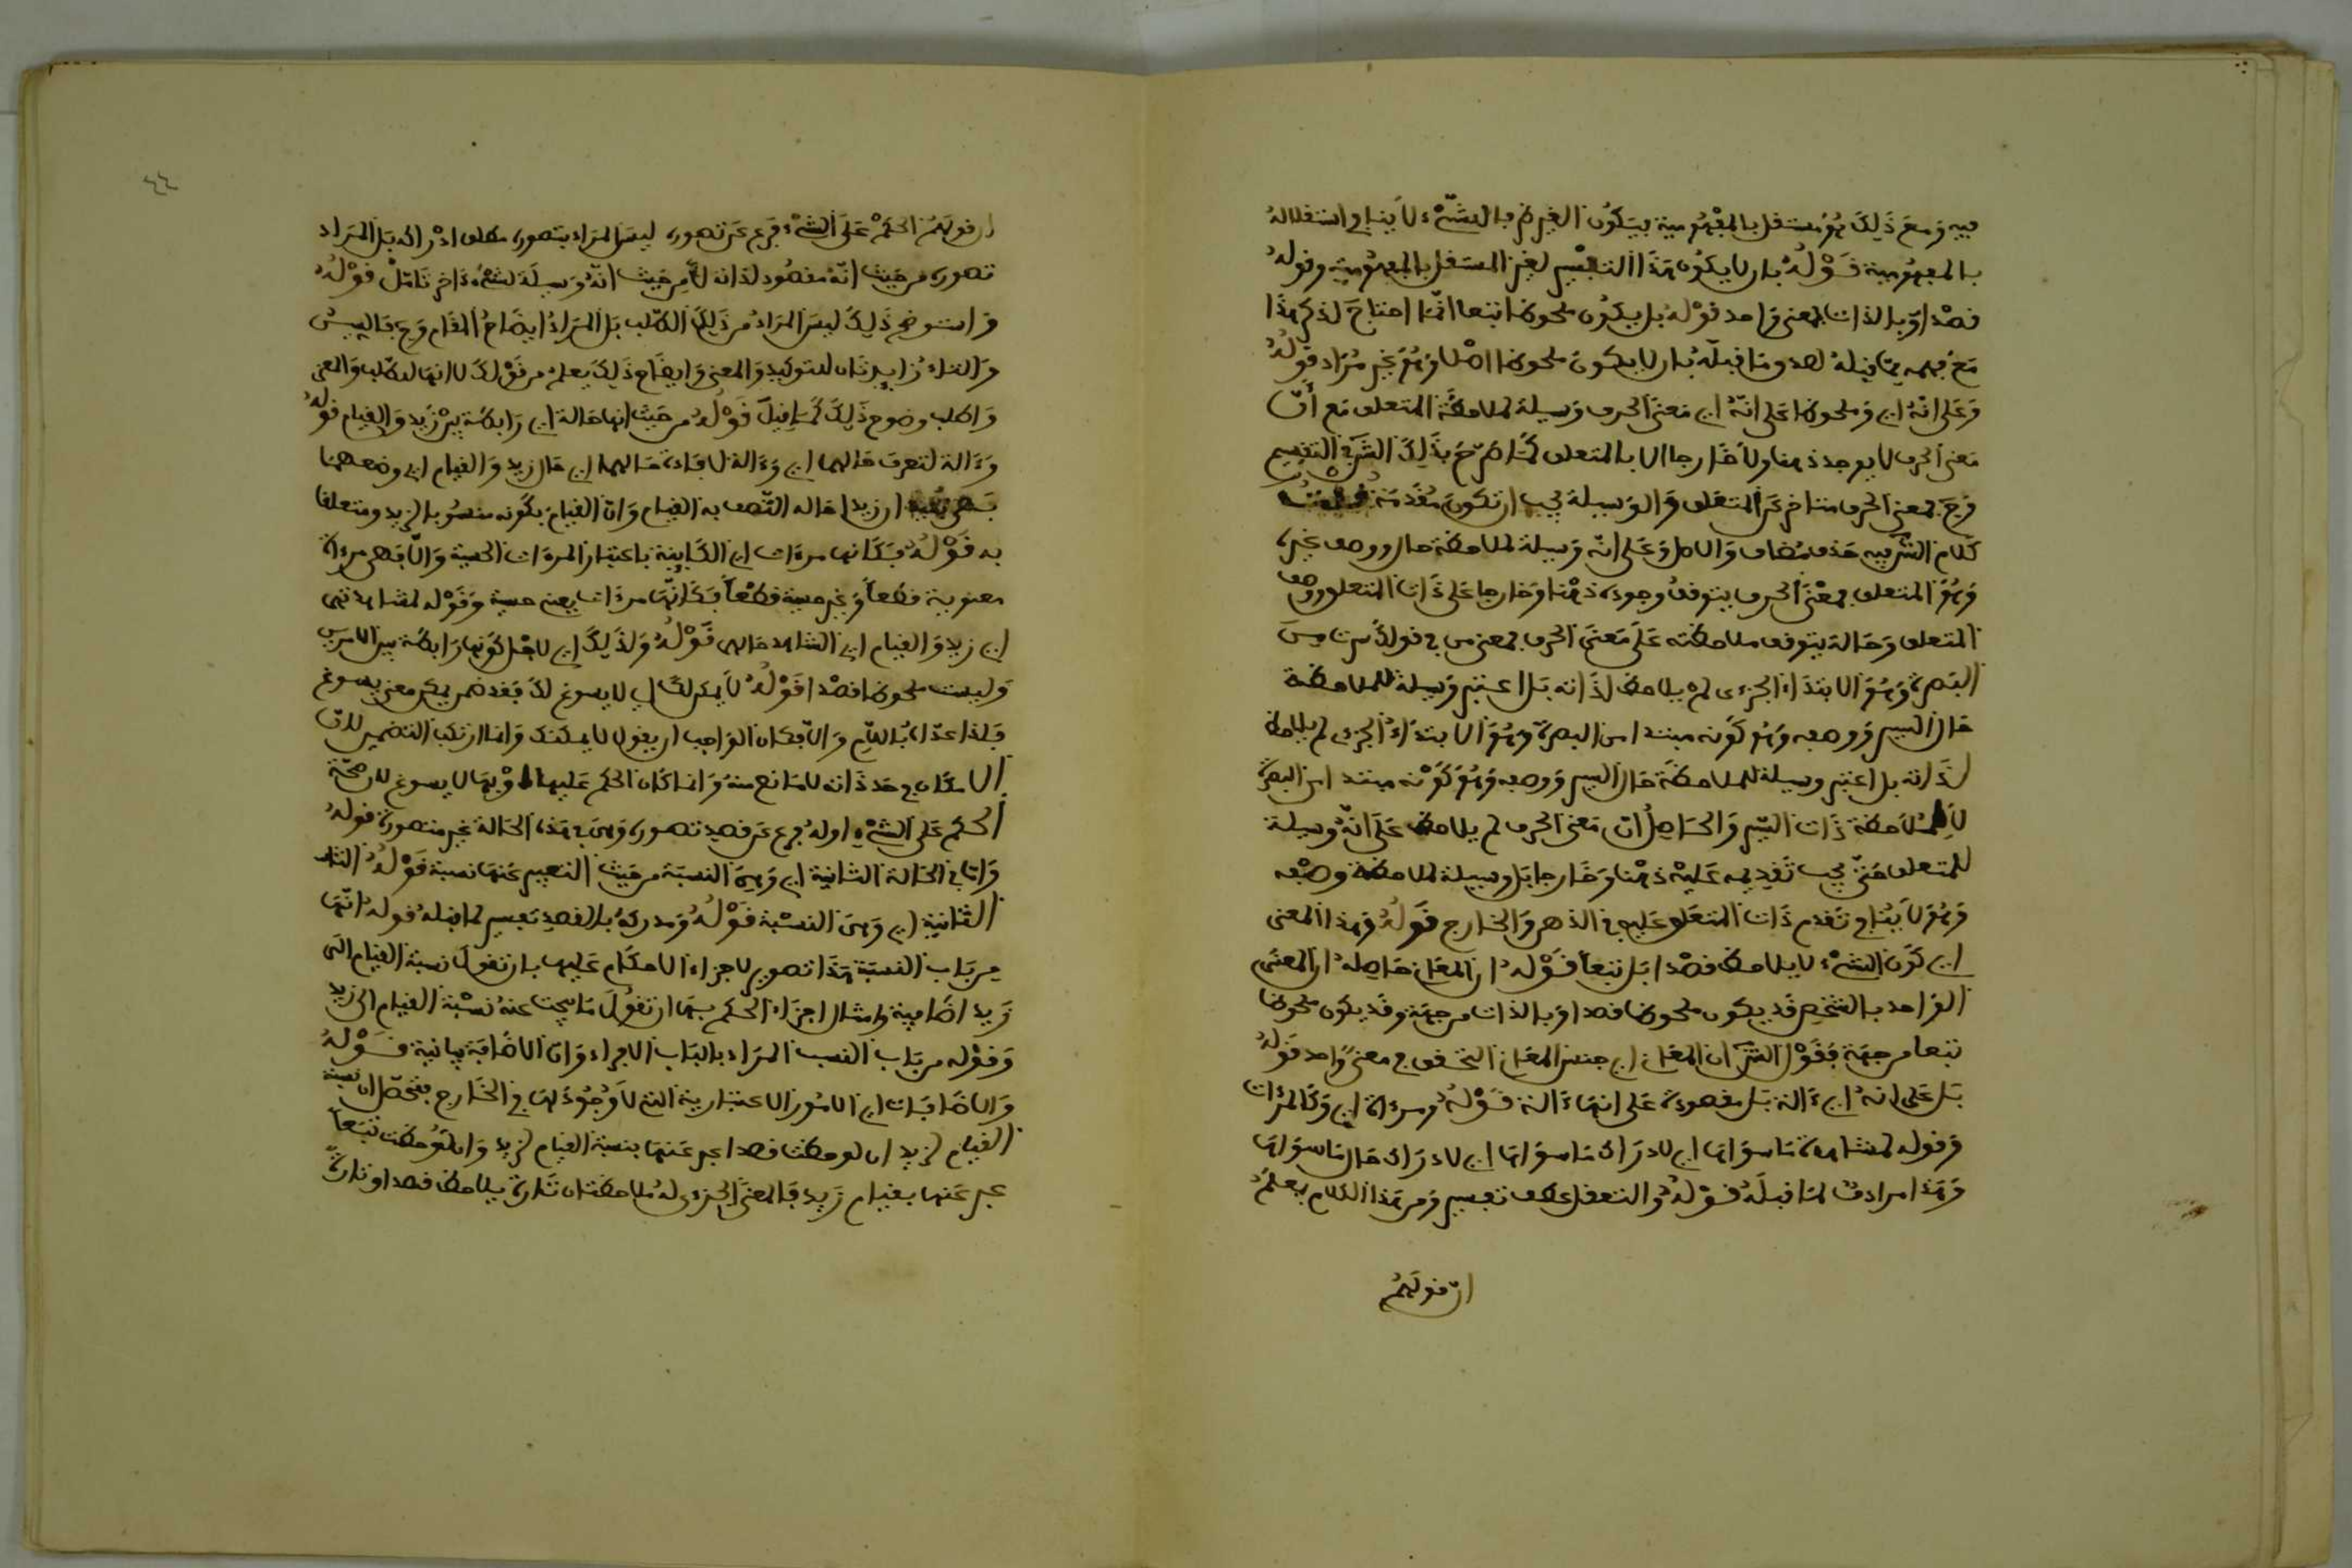 فيه ومع ذلك هو مستقل بالمفهومية فيكون الغير في بالشيء لا ينافي استقلاله
بالمفهومية قوله بان لا يكون هذا التفسير لغير المستقل بالمفهومية وقوله
قصدا وبالذات بمعنى واحد قوله بل يكون ملحوظا تبعا انما احتاج لذكر هذا
مع فهمه مما قبله لصدق ما قبله بان لا يكون ملحوظا اصلا وهو غير مراد قوله
وعلى انه اي وملحوظا على انه اي معنى الحرف وسيلة لملاحظة المتعلق مع أن
معنى الحرف لا يوجد ذهنا ولا خارجا الا بالمتعلق كما صرح بذلك الشر في التقسيم
فرجع معنى الحرف متاخر عن المتعلق والوسيلة يجب ان تكون مقدمة قلت
كلام الشر فيه حذف مضاف والاصل وعلى انه وسيلة لملاحظة حال ووصف غيره
وهو المتعلق فمعنى الحرف يتوقف وجوده ذهنا وخارجا على ذات المتعلق ووصف
المتعلق وحاله يتوقف ملاحظته على معنى الحرف فمعنى من في قولك سرت من
البصرة وهو الابتداء الجزءي لم يلاحظ لذاته بل اعتبر وسيلة للملاحظة
حال السير ووصفه وهو كونه مبتدا من البصرة وهو الابتداء الجزءي لم يلاحظ
لذاته بل اعتبر وسيلة لملاحظة حال السير ووصفه وهو كونه مبتدا من البصرة
لا لملاحظة ذات السير والحاصل ان معنى الحرف لم يلاحظ على انه وسيلة
للمتعلق حتى يجب تقديمه عليه ذهنا وخارجا بل وسيلة لملاحظة وصفه
وهو لا ينافي تقدم ذات المتعلق عليه في الذهن والخارج قوله وهذا المعنى
اي كون الشيء لا يلاحظ قصدا بل تبعا قوله ان المعاني حاصله ان المعنى
الواحد بالشخص قد يكون ملحوظا قصدا وبالذات من جهة وقد يكون ملحوظا
تبعا من جهة فقول الشر ان المعاني اي جنس المعاني التحقق في معنى واحد قوله
بل على انه اي ءالة بل مقصودة على انها ءالة قوله ومرءاة اي وكالمرءات
وقوله لمشاهدة ما سواها اي لادراك ما سواها اي لادراك حال ما سواها
وهذا مرادف لما قبله قوله والتعقل عطف تفسير ومن هذا الكلام يعلم
ان قولهم
٤٤
ان قولهم الحكم على الشيء فرع عن تصوره ليس المراد بتصوره مطلق ادراكه بل المراد
تصوره من حيث انه مقصود لذاته لا من حيث انه وسيلة لشيء ءاخر تامل قوله
واستوضح ذلك ليس المراد من ذلك الطلب بل المراد ايضاح المقام وح فالسين
والتاء زايدتان للتوكيد والمعنى وايضاح ذلك يعلم من قولك لا انها للطلب والمعنى
واطلب وضوح ذلك كما قيل قوله من حيث انها حالة اي رابطة بين زيد والقيام قوله
وءالة لتعرف حالهما اي وءالة لافادة حالهما اي حال زيد والقيام اي وصفهما
ان زيدا حاله اتصف به القيام وان القيام بكونه منسوبا لزيد ومتعلقا
به قوله فكانها مرءات اي الكاينة باعتبار المرءات الحسية والا فهي مرءاة
معنوية قطعا وغير حسية قطعا فكانها مرءات يعني حسية وقوله لمشاهدتهما
اي زيد والقيام اي لمشاهدة حالهما قوله ولذلك اي لاجل كونها رابطة بين الامرين
وليست ملحوظا قصدا قوله لا يمكن لك اي لا يسوغ لك فقد ضمن يمكن معنى يسوغ
فلذا عداه باللام والا فكان الواجب ان يقول لا يمكنك وانما ارتكب التضمين لان
الامكان في حد ذاته لا مانع منه وانما كان الحكم عليها او بها لا يسوغ لان صحة
الحكم على الشيء او له فرع عن قصد تصوره وهي في هذه الحالة غير متصورة قوله
واما في الحالة الثانية اي وهي النسبة من حيث التعبير عنها نسبة قوله الثا
الثانية اي وهي النسبة قوله ومدركة بالقصد تفسير لما قبله قوله انها
من باب النسبة هذا تصوير لاجراء الاحكام عليها بان تقول نسبة القيام الى
زيد اضافية ومثال اجزاء الحكم بها ان تقول ما يبحث عنه نسبة القيام الى زيد
وقوله من باب النسب المراد بالباب الاجراء وان الاضافة بيانية قوله
والاضافيات اي الامور الاعتبارية التي لا وجود لها في الخارج فتحصل ان نسبة
القيام لزيد ان لوحظت قصدا عبر عنها بنسبة القيام لزيد وان لوحظت تبعا
عبر عنها بقيام زيد فالمعنى الجزءي له ملاحظتان تارة يلاحظ قصدا وتارة